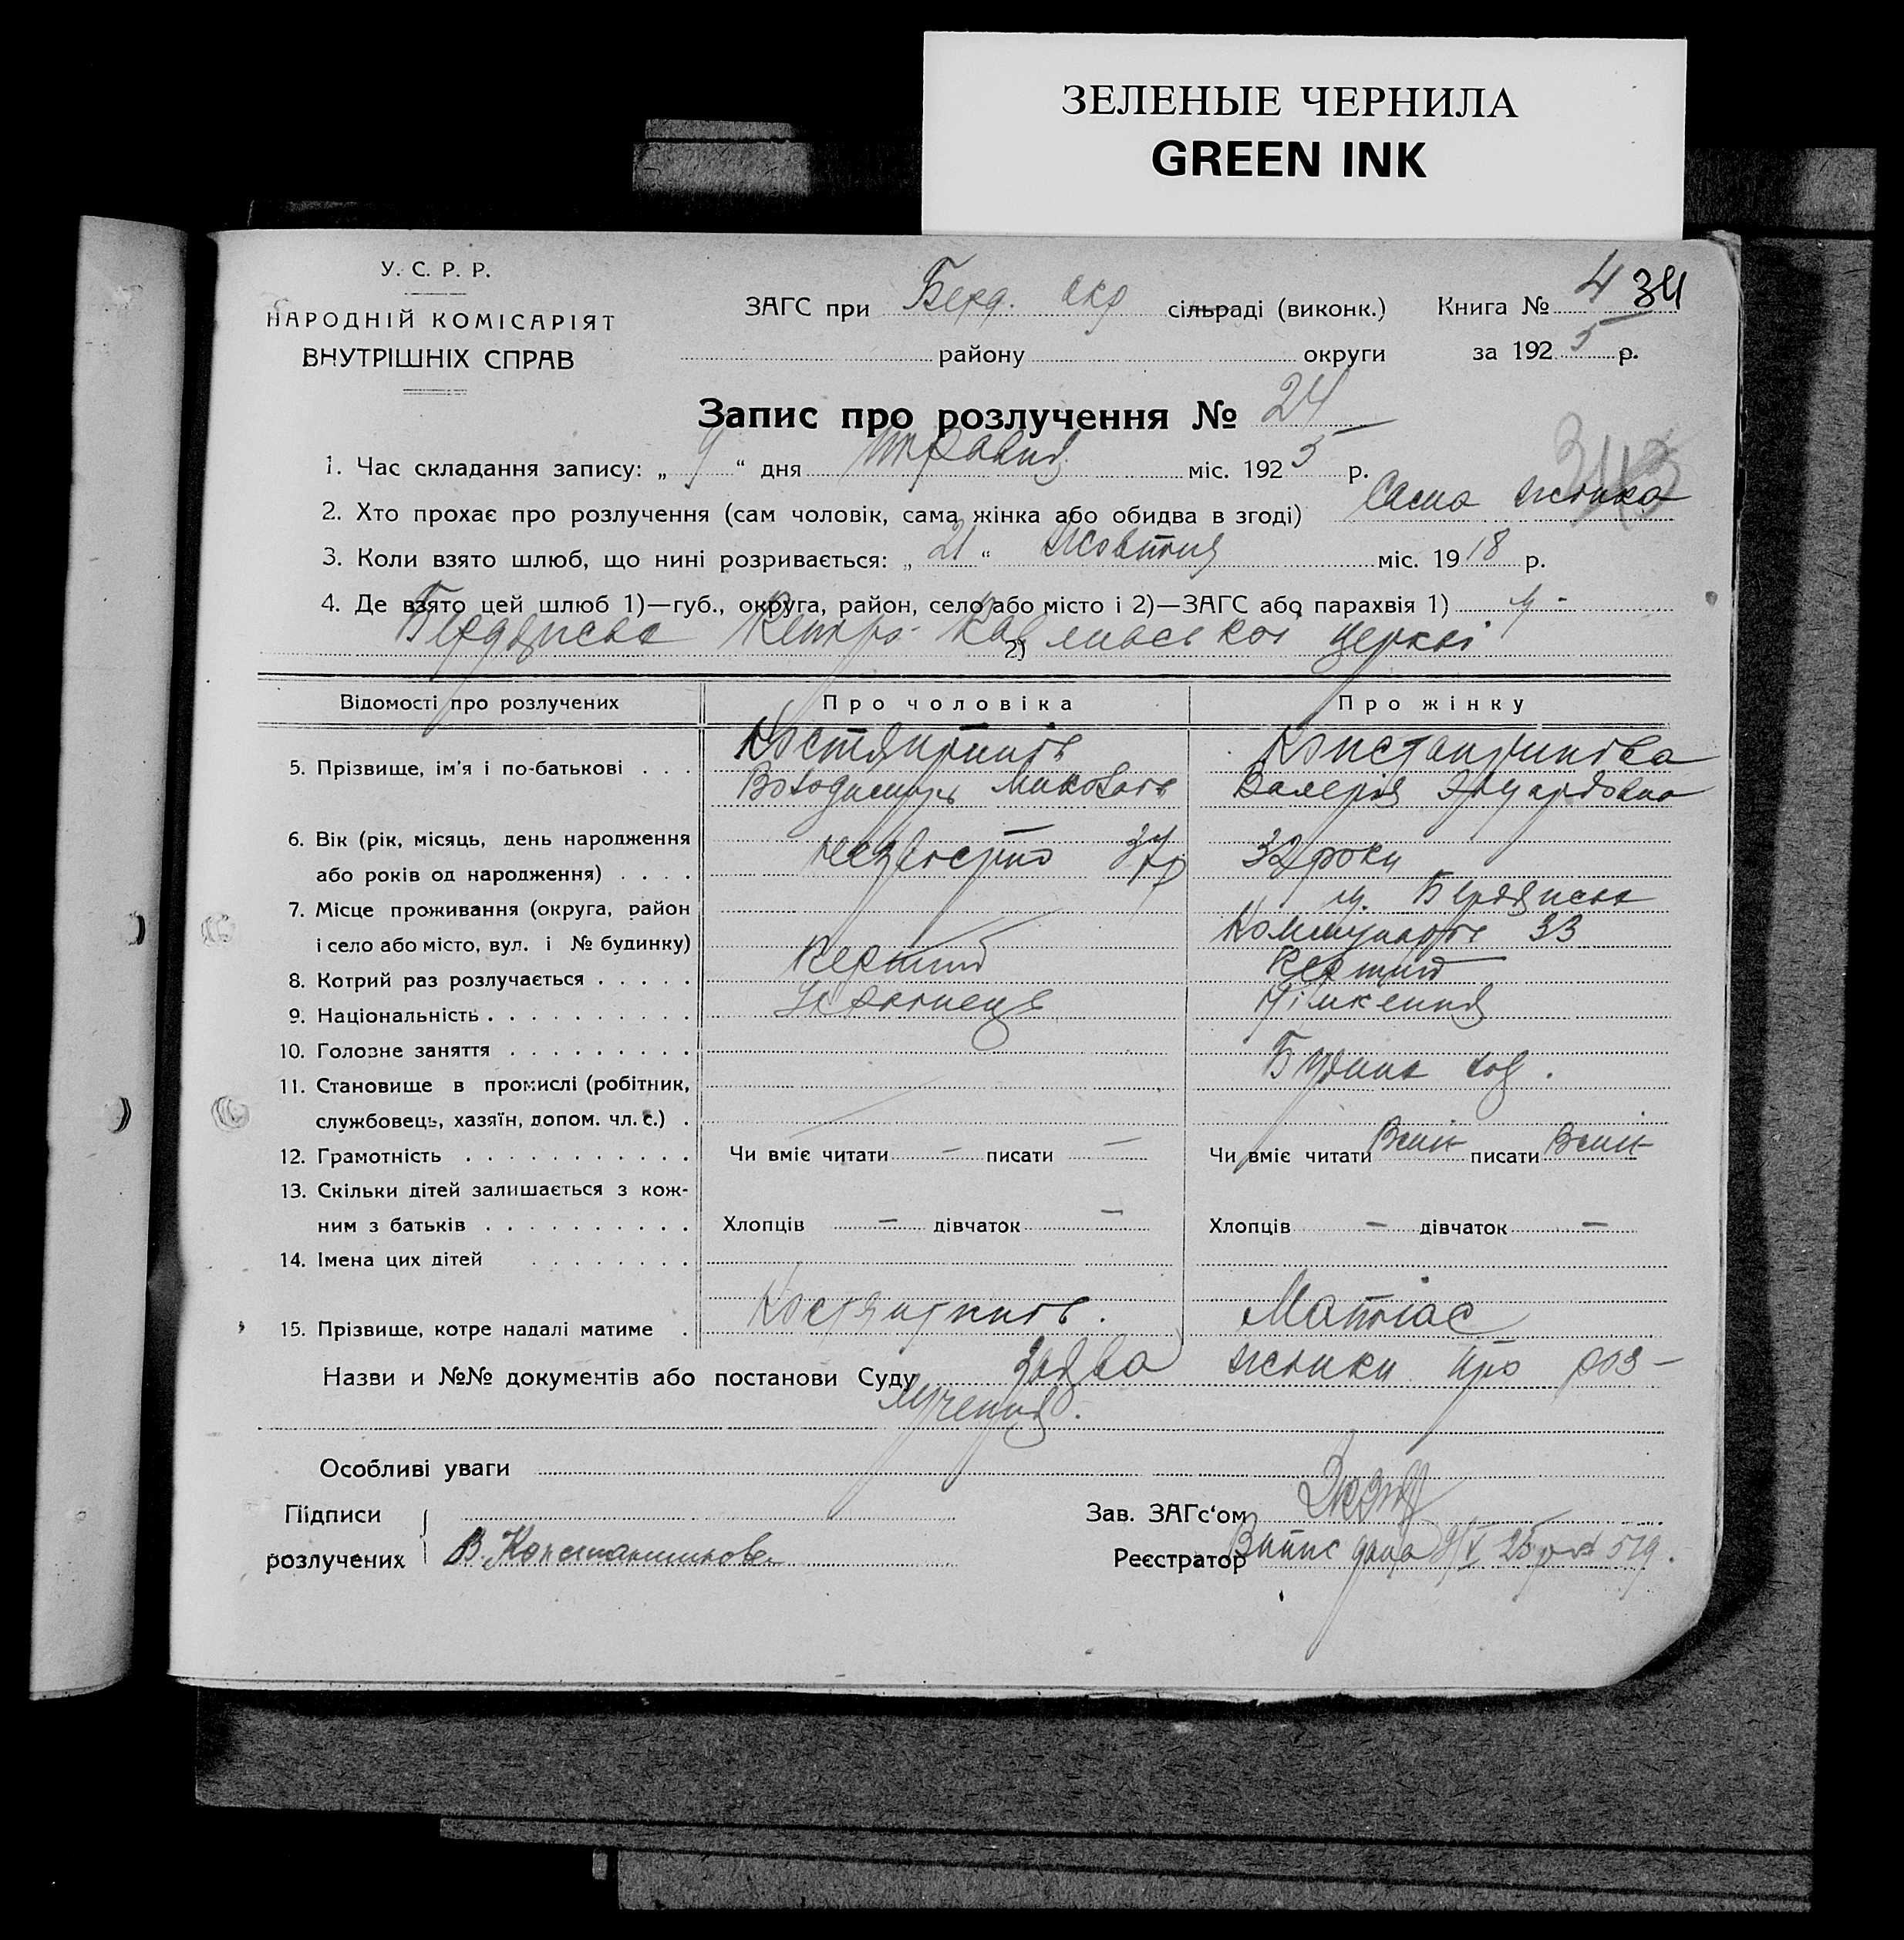 ЗЕЛЕНЫЕ ЧЕРНИЛА
GREEN INK
У. С. Р. Р.
НАРОДНІЙ КОМІСАРІЯТ
ВНУТРІШНІХ СПРАВ
ЗАГС при Берд. окр сільраді (виконк.) Книга № 4 34
району округи за 1925 р.
Запис про розлучення № 24
343
1. Час складання запису: „ 9 “ дня травня міс. 1925 р.
2. Хто прохає про розлучення (сам чоловік, сама жінка або обидва в згоді) Сама жінка
3. Коли взято шлюб, що нині розривається: „ 21 “ жовтня міс. 1918 р.
4. Де взято цей шлюб 1)—губ., округа, район, село або місто і 2)—ЗАГС або парахвія 1) м.
Бердянськ 2) Петро-Павлівської церкві
Відомості про розлучених Про чоловіка Про жінку
5. Прізвище, ім'я і по-батькові . . . Володимирь Валерія Эдуардовна
6. Вік (рік, місяць, день народження
або років од народження) . . . . 32 роки
7. Місце проживання (округа, район м. Бердянськ
і село або місто, вул. і № будинку) 33
8. Котрий раз розлучається . . . . . Перший Перший
9. Національність . . . . . . . . . . Українець Німкення
10. Головне заняття . . . . . . . . .
11. Становище в промислі (робітник,
службовець, хазяїн, допом. чл. с.) .
12. Грамотність . . . . . . . . . . . Чи вміє читати — писати — Чи вміє читати писати
13. Скільки дітей залишається з кож-
ним з батьків . . . . . . . . . . Хлопців — дівчаток — Хлопців — дівчаток —
14. Імена цих дітей . . . . . . . .
15. Прізвище, котре надалі матиме . Матіас
Назви и №№ документів або постанови Суду Заява жінки про роз-
лучення.
Особливі уваги
Підписи Зав. ЗАГс'ом
розлучених В. Константинова Реєстратор Витис дана 9/V 25р № 519.